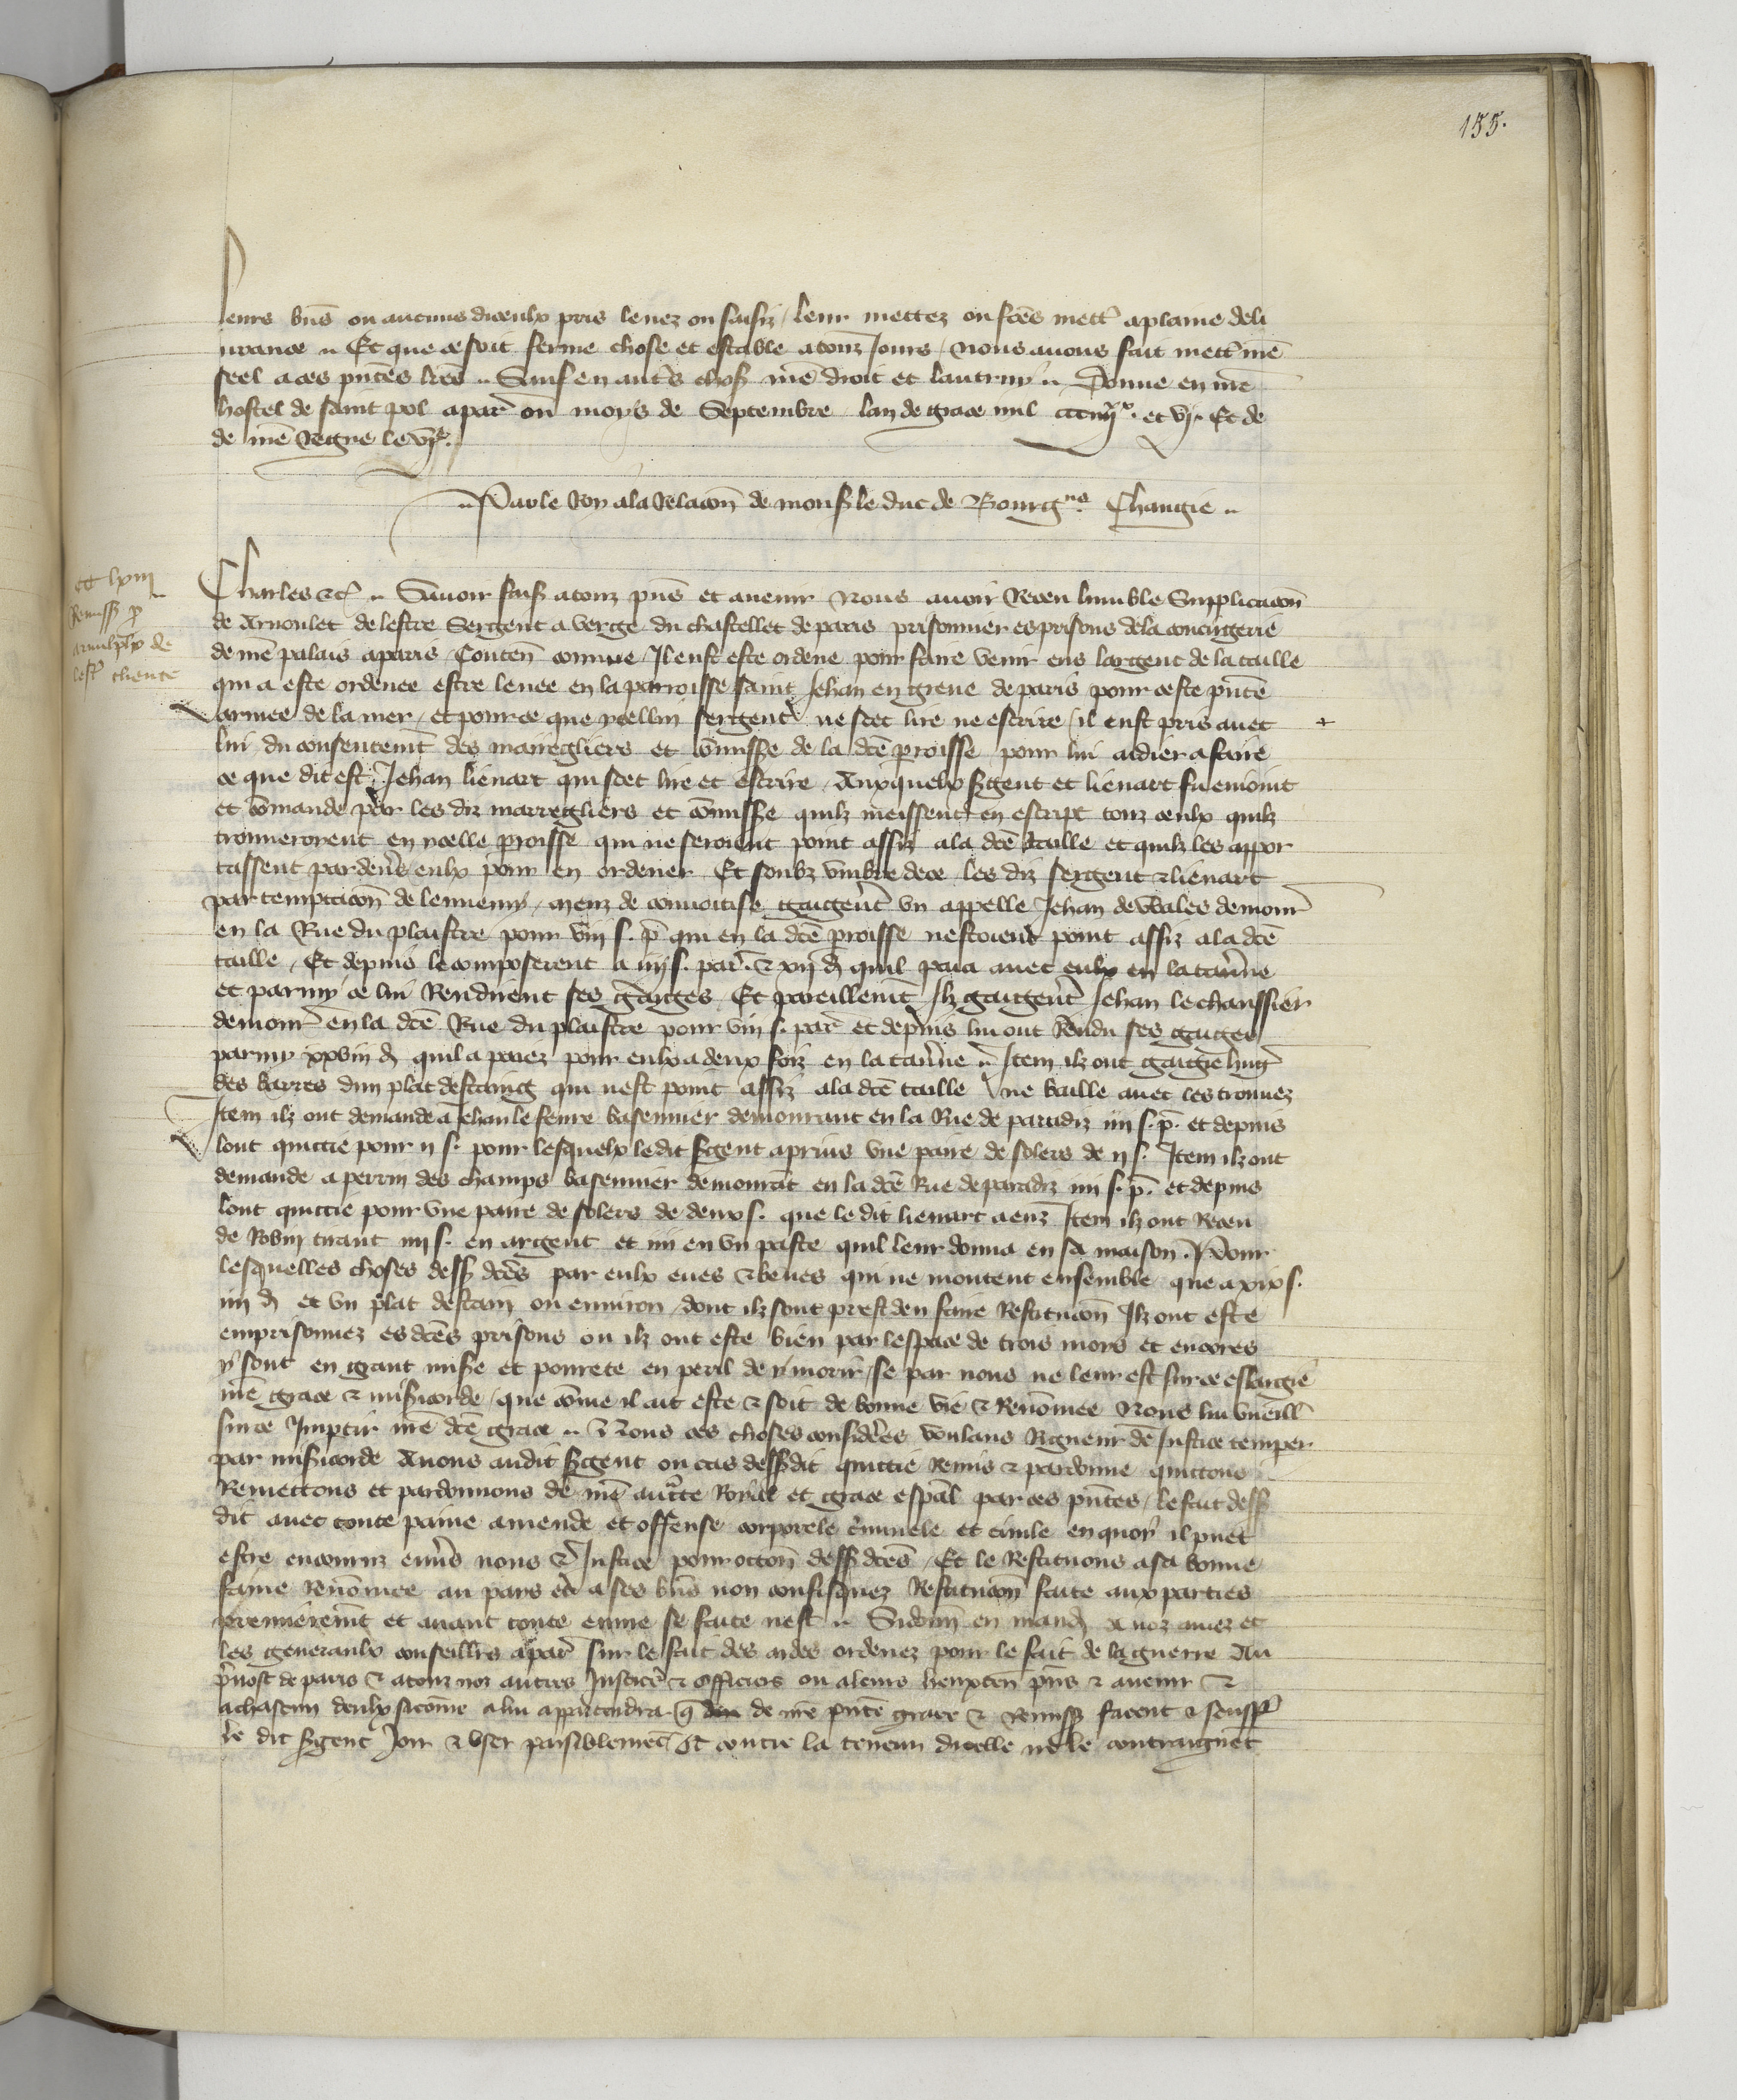 155.
leurs biēs ou aucuns diceulx pris levez ou saisiz / leur mettez ou fc̄es mettr̄ a plaine deli
vrance .. Et que ce soit ferme chose et estable a touz jours / nous avons fait mettr̄ nr̄e
seel a ces pñtes lr̄es .. Sauf en autrs̄ choses nr̄e droit et lautruy .. Donne en nr̄e
hostel de saint pol a par̄ ou moys de Septembre lan de grace mil ccc iiijxx. et vj. Et de
de nr̄e Regne le vje.
.. Par le Roy a la Relacōn de mons. le duc de Bourgne. Changie ..
cc lxiij
Remiss. p
arnulpho de
lestr̄ cliente
Charles &c̄ .. Savoir fais. a touz pñs et avenir Nous avoir Receu lumble Supplicacōn
de Arnoulet de lestre Sergent a verge du chastellet de paris prisonnier es prisons de la conciergerie
de nr̄e palais a paris / Conteñ comme / Il eust este ordene pour faire venir ens largent de la taille
qui a este ordenee estre levee en la parroisse saint Jehan en greve de paris pour ceste pñte
armee de la mer / et pour ce que ycellui sergent ne scet lire ne escrire / il eust pris avec +
lui du consentemt̄ des marregliers et cōmisse de la dc̄e proisse pour lui aidier a faire
ce que dit est Jehan lienart qui scet lire et escrire / Auxquelx sgent et lienart fu enioint
et cōmande par les diz marregliers et cōmisse quilz meissent en escript touz ceulx quilz
trouveroient en ycelle proisse qui ne seroient point assiz a la dc̄e taille et quilz les appor
tassent par devs̄ eulx pour en ordener Et soubz umbre de ce les diz sergent & lienart
par temptacōn de lennemy / meuz de convoitise gaigerēt un appelle Jehan de Wales demour̄
en la Rue du plaistre pour viij s. p̄ qui en la dc̄e proisse nestoient point assiz a la dc̄e
taille / Et depuis le composerent a iiij s. par̄. & xij d. quil paia avec eulx en la tav̄ne
et parmy ce lui Rendirent ses gaiges Et pareillemt̄ Ilz gaigerēt Jehan le chaussier
demour̄ en la dc̄e Rue du plaistre pour viij s. par̄ et depuis lui ont Rendu ses gaiges
parmy xxviij d. quil a paiez pour eulx a deux foiz en la tav̄ne .. Item ilz ont gaigie huḡ
des barres dun plat destaing qui nest point assiz a la dc̄e taille ne baille avec les trouvez
Item ilz ont demande a Jehan le fevre basennier demourant en la Rue de paradiz iiij s. p̄. et depuis
lont quittie pour ij s. pour lesquelx le dit sgent a prins une paire de solers de ij s. Item ilz ont
demande a perrin des champs basennier demourāt en la dc̄e Rue de paradiz iiij s. p̄. et depuis
lont quittie pour une paire de solers de deux s. que le dit lienart a euz Item ilz ont Receu
de Robin tirant iiij s. en argent et iiij en un paste quil leur donna en sa maison. Pour
lesquelles choses dess. dc̄es par eulx eues & beues qui ne montent ensemble que a xix s.
iiij d. et un plat destain ou environ / dont ilz sont prest den faire Restitucōn Ilz ont este
emprisonnez es dc̄es prisons ou ilz ont este bien par lespace de trois mois et encores
y sont en grant misere et povrete en peril de y morir / se par nous ne leur est sur ce eslargie
nr̄e grace & mis̄icorde / que cōme il ait este & soit de bonne vie & Renōmee Nous lui vueill̄
sur ce Impartir nr̄e dc̄e grace .. Nous ces choses considerēes voulans Rigueur de Justice temper
par mis̄icorde Avons audit sgent ou cas dessusdit quittie Remis & pardonne quittons
Remettons et pardonnons de nr̄e auct̄te Royal et grace esp̄al par ces pñtes / le fait dess.
dit avec toute paine amende et offense corporele cīminele et civile en quoy il puet
estre encouruz envs̄ nous & Justice pour occōn dess. dc̄es / Et le Restituons a sa bonne
fame Renōmee au pais et a ses biēs non confisquez Restitucōn faite aux parties
premieremt̄ et avant toute euvre se faite nest .. Si donn̄ en mand. a noz amez et
les generaulx conseillrs̄ a par̄ sur le fait des aides ordenez pour le fait de la guerre Au
p̄vost de paris & a touz noz autres Justic̄ & officiers ou a leurs lieuxten̄ pñs & avenir &
a chascun deulx si cōme a lui appartendra q̄ de nr̄e pñte grace & Remiss. facent & seuff̄r
le dit sgent Joir & user paisiblement Et contre la teneur dicelle ne le contraignēt